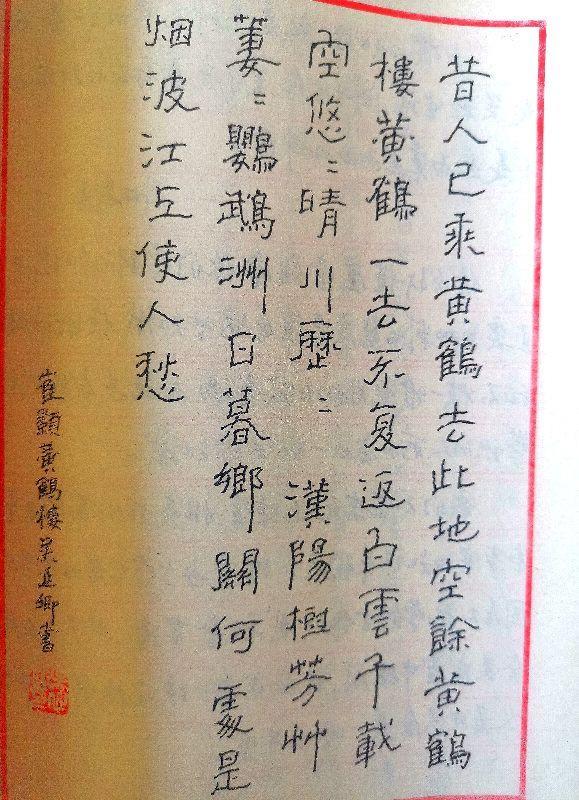 昔人已乘黄鶴去此地空餘黄鶴
樓黄鶴一去不复返白雲千載
空悠〻晴川歷〻漢陽樹芳艸
萋〻鸚鵡洲日暮鄉關何處是
烟波江上使人愁
崔顥黄鶴樓吴卿書